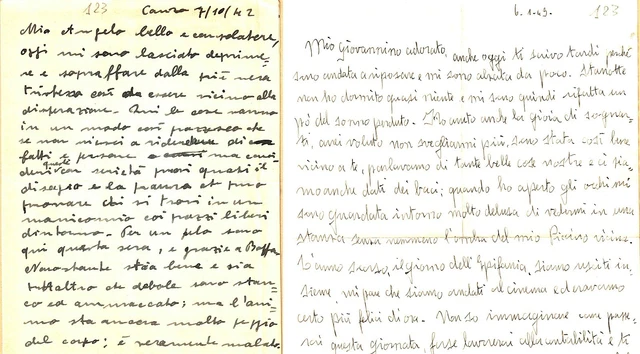 123 Canro 7/10/42
Mio Angelo bello e consolatore,
oggi mi sono lasciato deprime=
re e sopraffare dalla più nera
tristezza così da essere vicino alla
disperazione. Qui le cose vanno
in un modo così pazzesco che
se non riesci a ridere di
fatti e persone ma consi=
deri con serietà provi quasi il
disagio e la paura che può
provare chi si trovi in un
manicomio coi pazzi liberi
d'intorno. Per un pelo sono
qui questa sera, e grazie a Boffa
Nonostante stia bene e sia
tutt'altro che debole sono stan=
co ed ammaccato; ma l'ani=
mo sta ancora molto peggio
del corpo; è veramente malato
6-1-43. 123
Mio Giovannino adorato, anche oggi ti scrivo tardi perché
sono andata a riposare e mi sono alzata da poco. Stanotte
non ho dormito quasi niente e mi sono quindi rifatta un
po' del sonno perduto. Ho avuto anche la gioia di sognar=
ti, avrei voluto non svegliarmi più, sono stata così bene
vicino a te, parlavamo di tante belle cose nostre e ci sia=
mo anche dati dei baci; quando ho aperto gli occhi mi
sono guardata intorno molto delusa di vedermi in una
stanza senza nemmeno l'ombra del mio vicino.
L'anno scorso, il giorno dell'Epifania, siamo usciti in=
sieme, mi pare che siamo andati al cinema ed eravamo
certo più felici di ora. Non so immaginare come passe=
rai questa giornata, forse lavorerai alla contabilità e ti